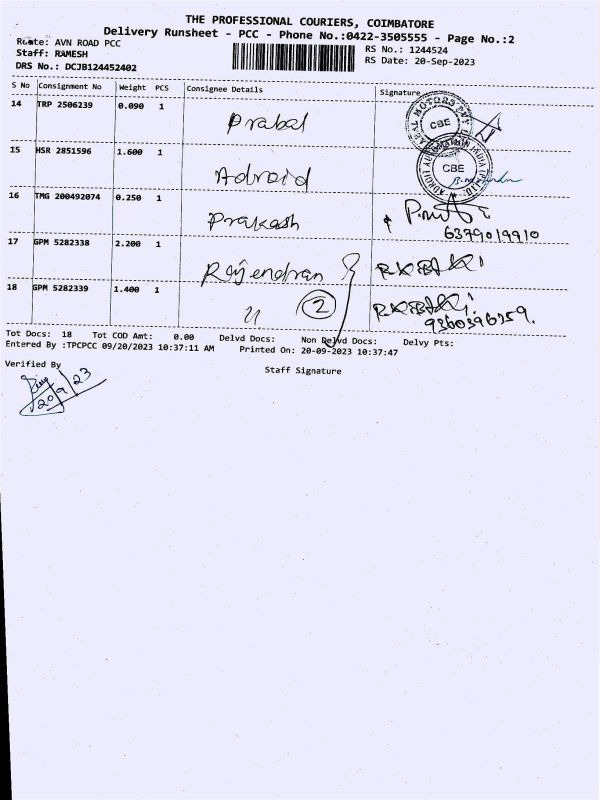 THE PROFESSIONAL COURIERS, COIMBATORE
Delivery Runsheet - PCC - Phone No.:0422-3505555 - Page No.:2
Route: AVN ROAD PCC
RS No.: 1244524
Staff: RAMESH
RS Date: 20-Sep-2023
DRS No.: DCJB124452402
S No Consignment No Weight PCS Consignee Details Signature
14 TRP 2506239 0.090 1 Prabal
CBE
15 HSR 2851596 1.600 1 Adroid
CBE
16 TMG 200492074 0.250 1 Prakash
6379019910
17 GPM 5282338 2.200 1 Rajendran
18 GPM 5282339 1.400 1 2
9360396759.
Tot Docs: 18 Tot COD Amt: 0.00 Delvd Docs: Non Delvd Docs: Delvy Pts:
Entered By :TPCPCC 09/20/2023 10:37:11 AM Printed On: 20-09-2023 10:37:47
Verified By
Staff Signature
20/9/23